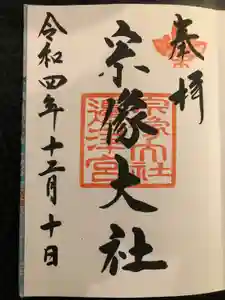 奉拝
宗像大社
令和四年十二月十日
宗像大社
邊津宮